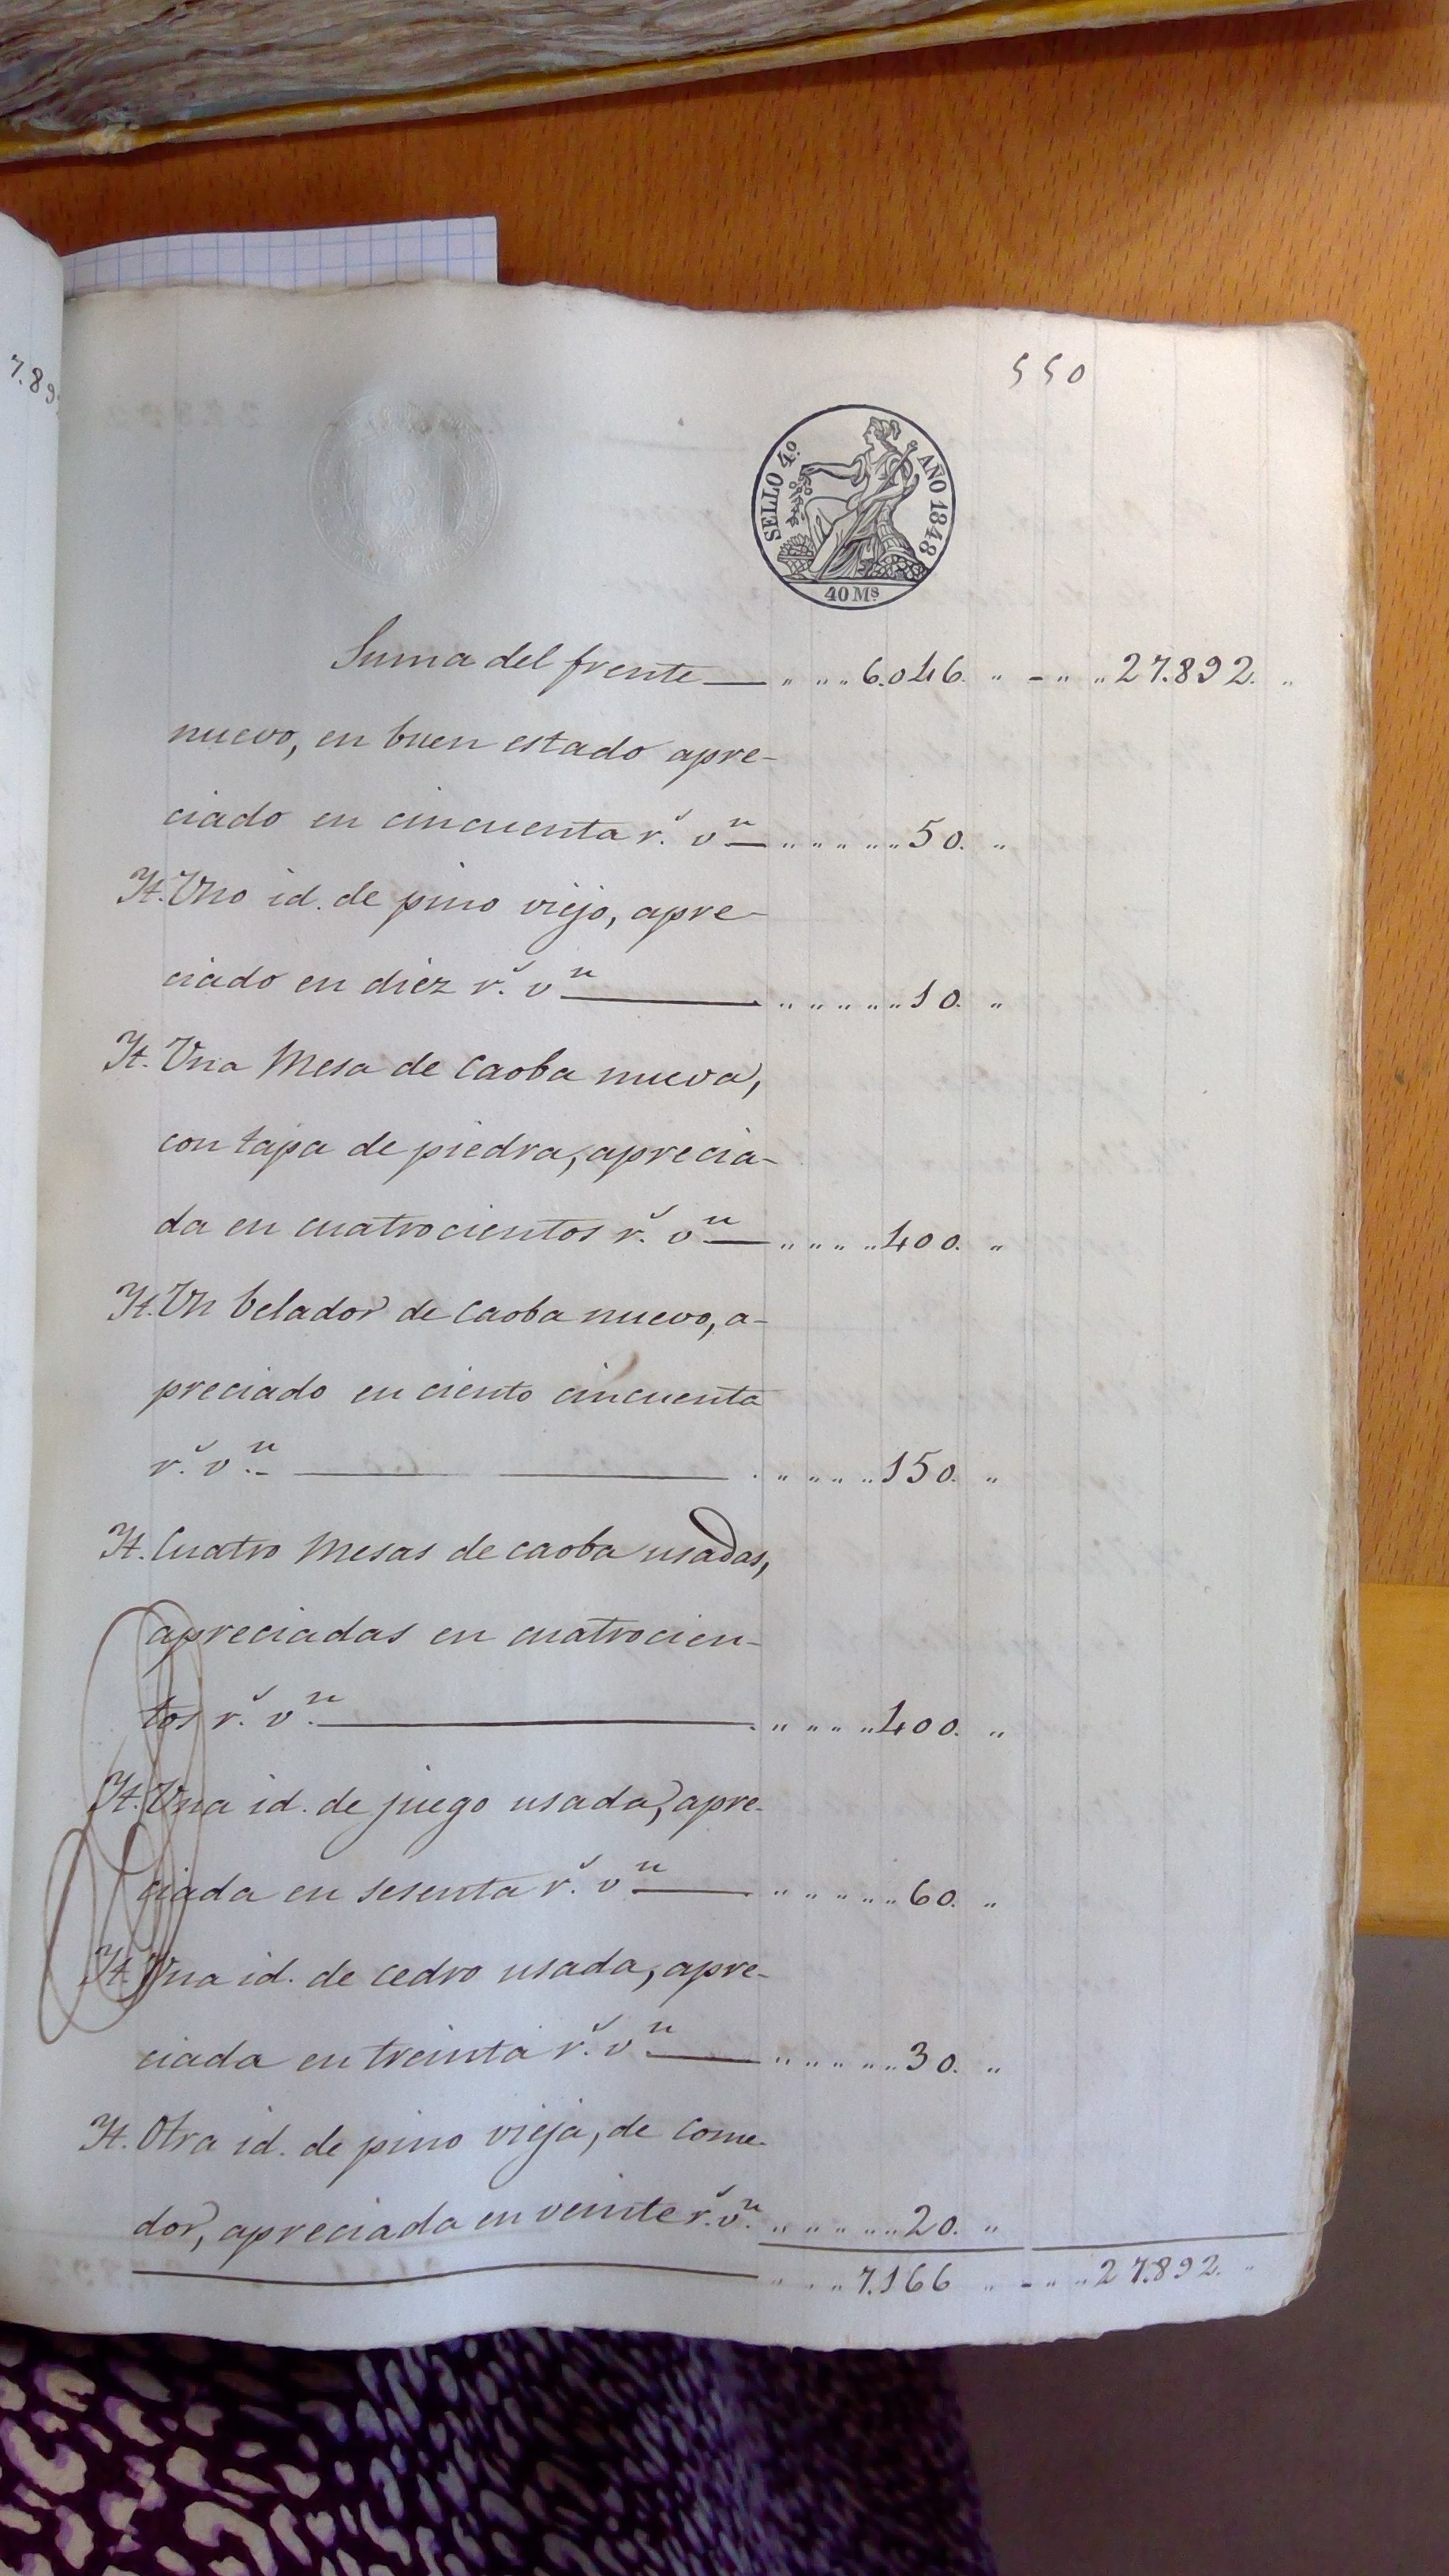 550
7.89
SELLO 4º. AÑO 1848
40 Ms
Suma del frente — „ „ „ 6.046. „ - „ „ 27.892. „
nuevo, en buen estado apre-
ciado en cincuenta r.s v.n — „ „ „ „ „ 50. „
Yt. Uno id. de pino viejo, apre-
ciado en diez r.s v.n — „ „ „ „ „ 10. „
Yt. Una Mesa de Caoba nueva,
con tapa de piedra, aprecia-
da en cuatrocientos r.s v.n — „ „ „ „ 400. „
Yt. Un belador de Caoba nuevo, a-
preciado en ciento cincuenta
r.s v.n — „ „ „ „ 150. „
Yt. Cuatro Mesas de caoba usadas,
apreciadas en cuatrocien-
tos r.s v.n — „ „ „ „ 400. „
Yt. Una id. de juego usada, apre-
ciada en sesenta r.s v.n — „ „ „ „ „ 60. „
Yt. Una id. de cedro usada, apre-
ciada en treinta r.s v.n — „ „ „ „ „ 30. „
Yt. Otra id. de pino vieja, de come-
dor, apreciada en veinte r.s v.n „ „ „ „ „ 20. „
— „ „ „ 7.166 „ - „ „ 27.892. „